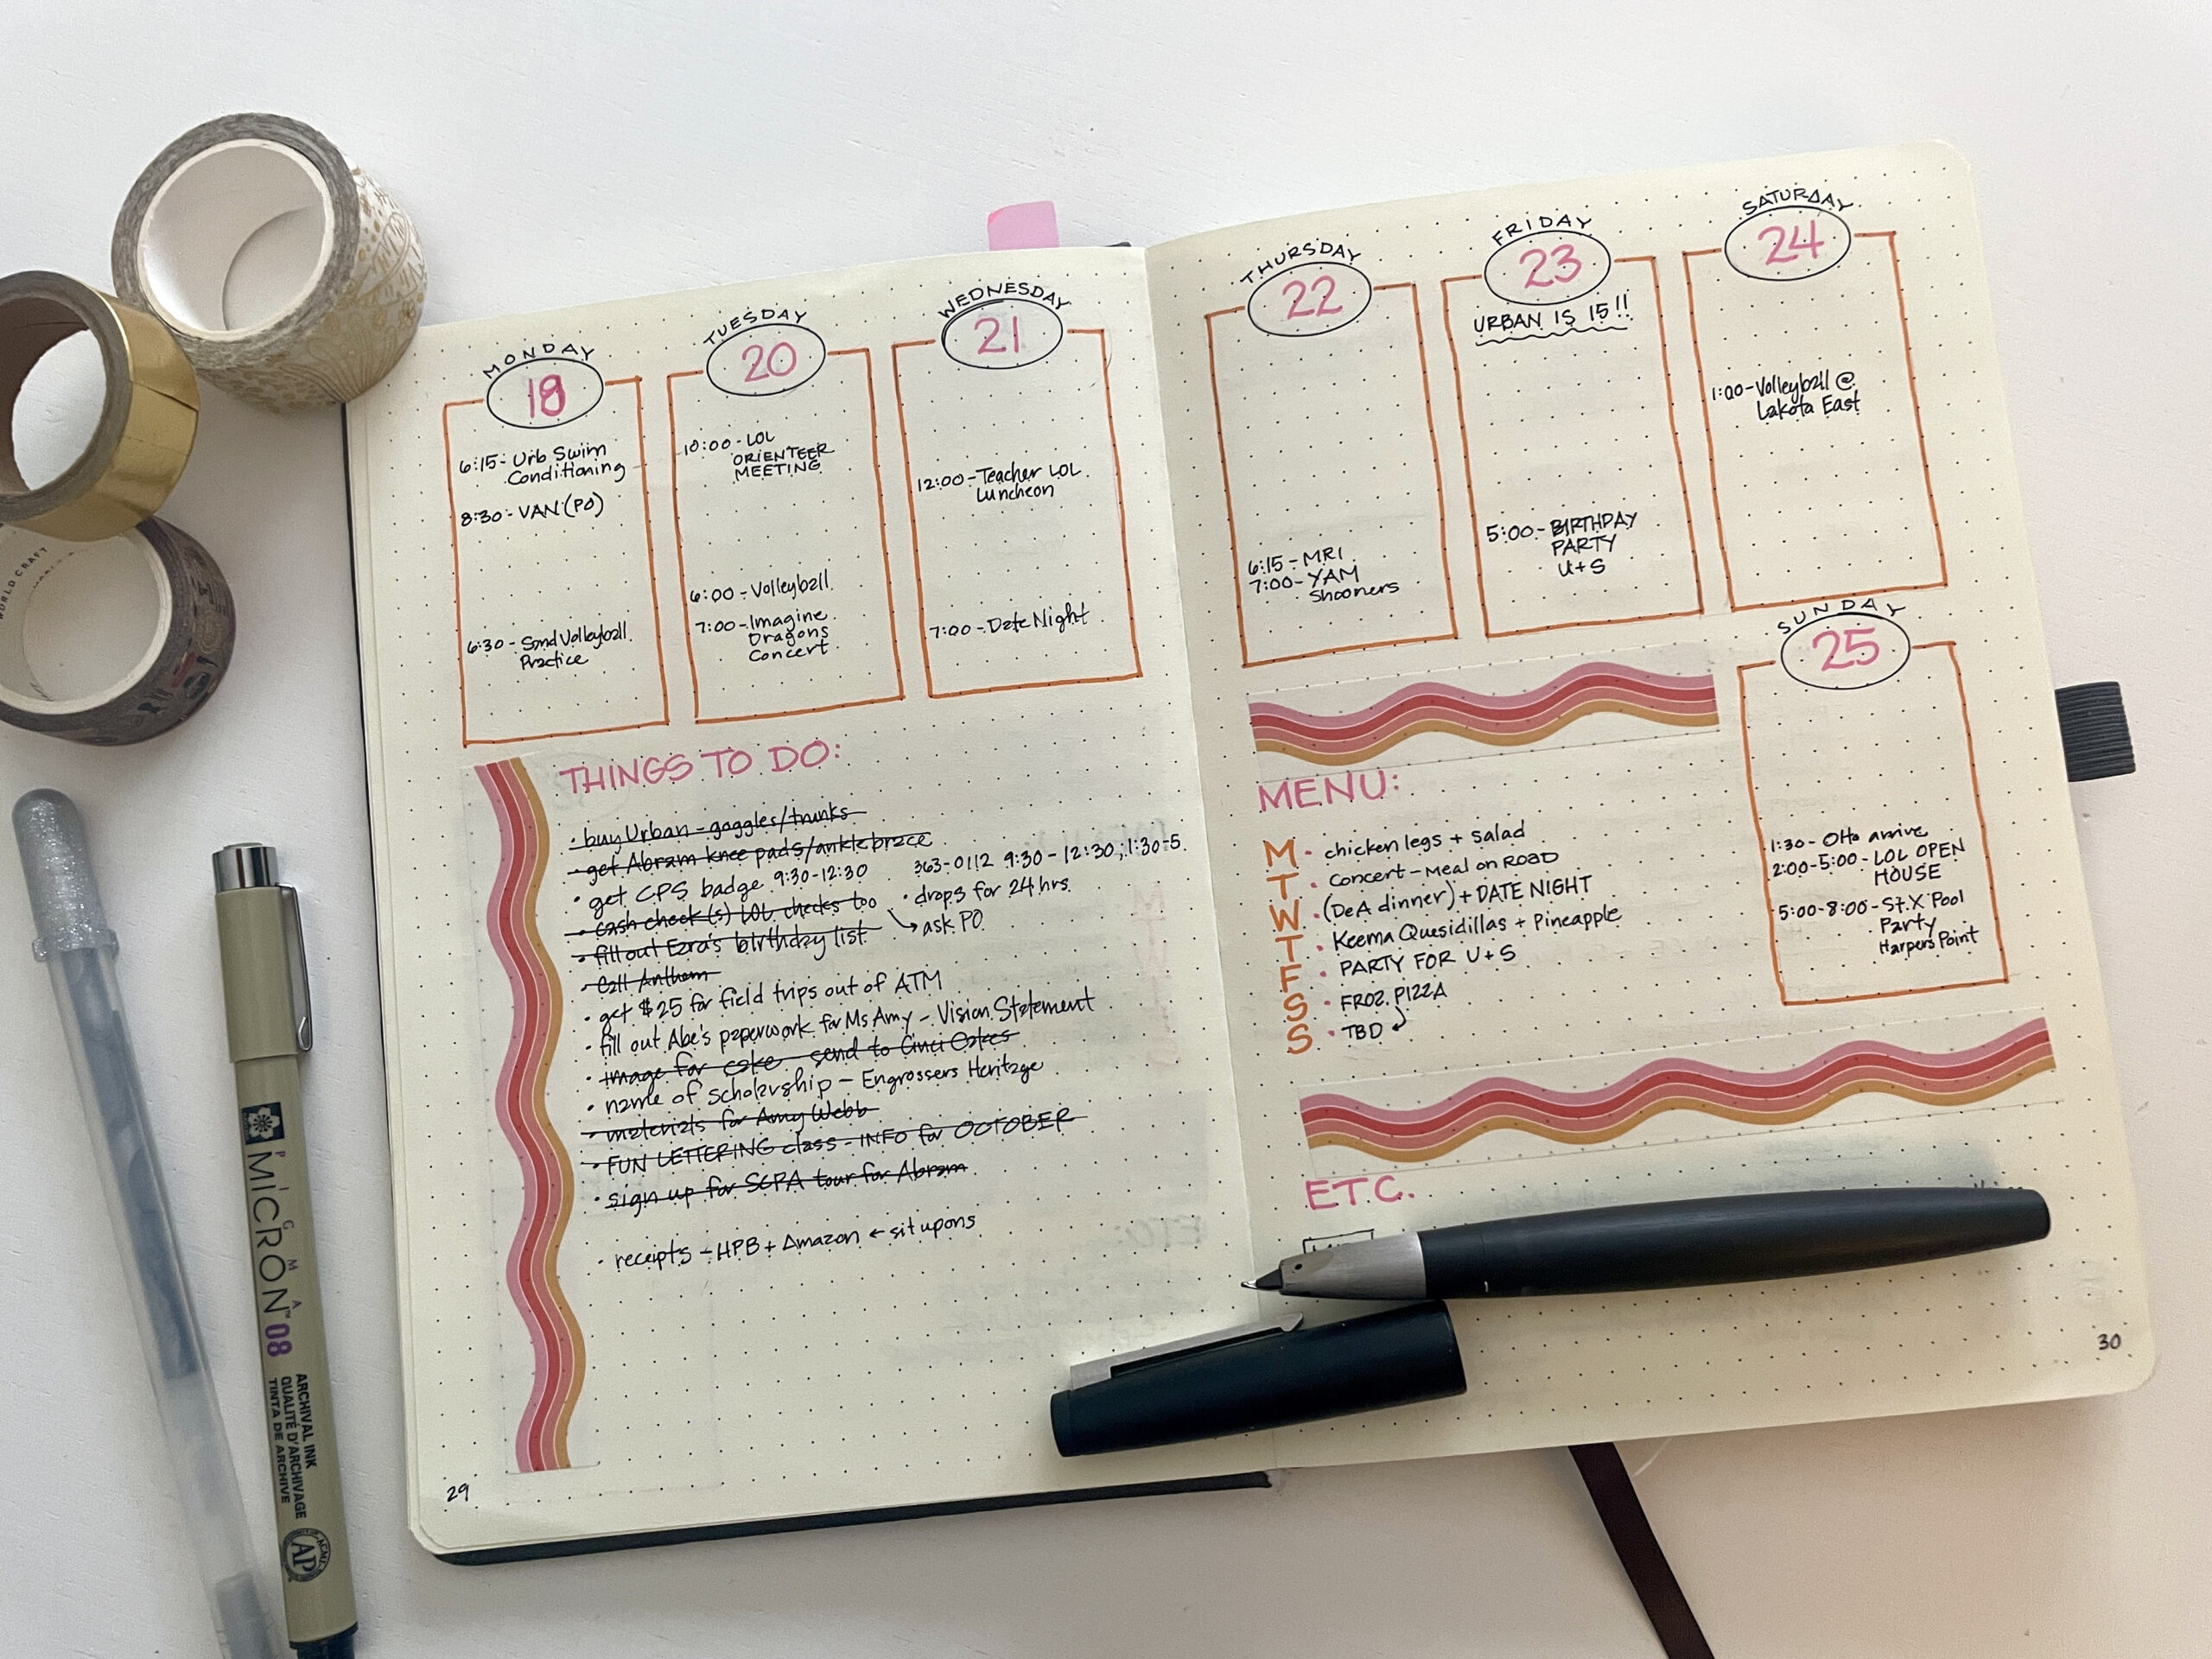 MONDAY
18
6:15- Urb Swim
Conditioning
8:30- VAN (PO)
6:30- Sand Volleyball
Practice
TUESDAY
20
10:00- LOL
ORIENTEER
MEETING
6:00- Volleyball
7:00- Imagine
Dragons
Concert
WEDNESDAY
21
12:00- Teacher LOL
Luncheon
7:00- Date Night
THINGS TO DO:
• buy Urban - goggles/trunks
• get Abram knee pads/ankle brace
• get CPS badge 9:30-12:30
363-0112 9:30-12:30, 1:30-5
• cash check(s) LOL checks too
• drops for 24 hrs.
→ ask PO
• fill out Ezra's birthday list
• Call Anthem
• get $25 for field trips out of ATM
• fill out Abe's paperwork for Ms Amy - Vision Statement
• image for cake - send to Cinci Cakes
• name of scholarship - Engrossers Heritage
• materials for Amy Webb
• FUN LETTERING class - INFO for OCTOBER
• sign up for SCPA tour for Abram
• receipts - HPB + Amazon ← sit upons
29
THURSDAY
22
6:15- MRI
7:00- YAM
Shooners
FRIDAY
23
URBAN IS 15!!
5:00- BIRTHDAY
PARTY
U+S
SATURDAY
24
1:00- Volleyball @
Lakota East
SUNDAY
25
1:30- OHo arrive
2:00-5:00- LOL OPEN
HOUSE
5:00-8:00- St. X Pool
Party
Harpers Point
MENU:
M • chicken legs + salad
T • Concert - Meal on ROAD
W • (DeA dinner) + DATE NIGHT
T • Keema Quesidillas + Pineapple
F • PARTY FOR U+S
S • FROZ. PIZZA
S • TBD
ETC.
30
WORLD CRAFT
PIGMA
MICRON™ 08
ARCHIVAL INK
QUALITÉ D'ARCHIVAGE
TINTA DE ARCHIVE
AP